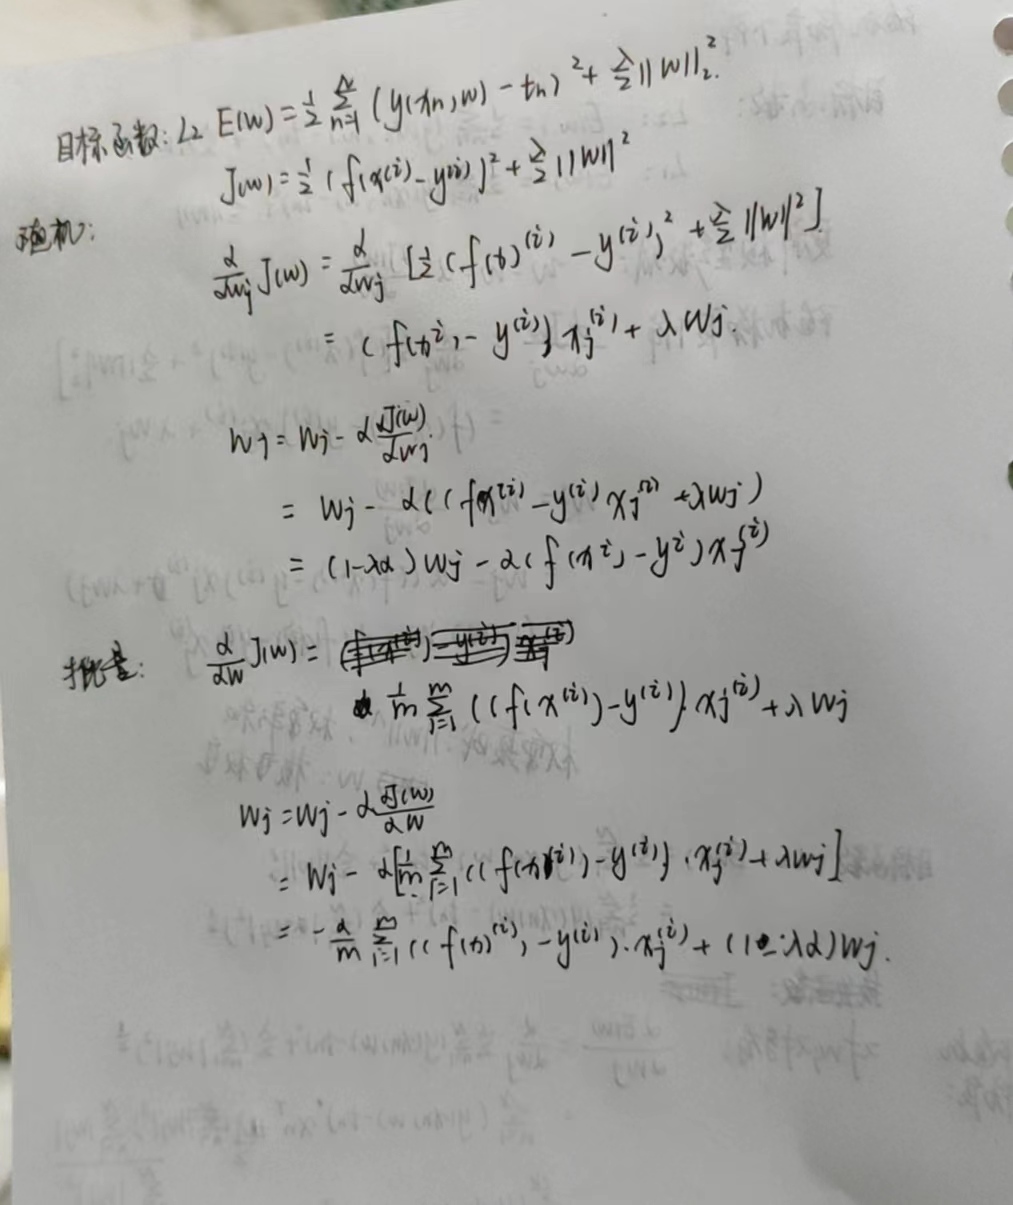 目标函数: L2 E(w) = 1/2 Σ_{n=1}^{N} (y(xn,w) - tn)² + λ/2 ||w||₂².
J(w) = 1/2 (f(x^(i) - y^(i))² + λ/2 ||w||²
随机:
d/dwj J(w) = d/dwj [1/2 (f(x)^(i) - y^(i))² + λ/2 ||w||²].
= (f(x^i) - y^(i)) xj^(i) + λwj.
wj = wj - α dJ(w)/dwj
= wj - α((f(x^(i) - y^(i) xj^(i) + λwj)
= (1-λα)wj - α(f(x^i) - y^i) xj^(i)
批量: d/dw J(w) =
1/m Σ_{i=1}^{m} ((f(x^(i)) - y^(i)) xj^(i) + λwj
wj = wj - α dJ(w)/dw
= wj - α[1/m Σ_{i=1}^{m} ((f(x)^(i)) - y^(i)) · xj^(i) + λwj]
= - α/m Σ_{i=1}^{m} ((f(x)^(i)) - y^(i)) · xj^(i) + (1-λα)wj.